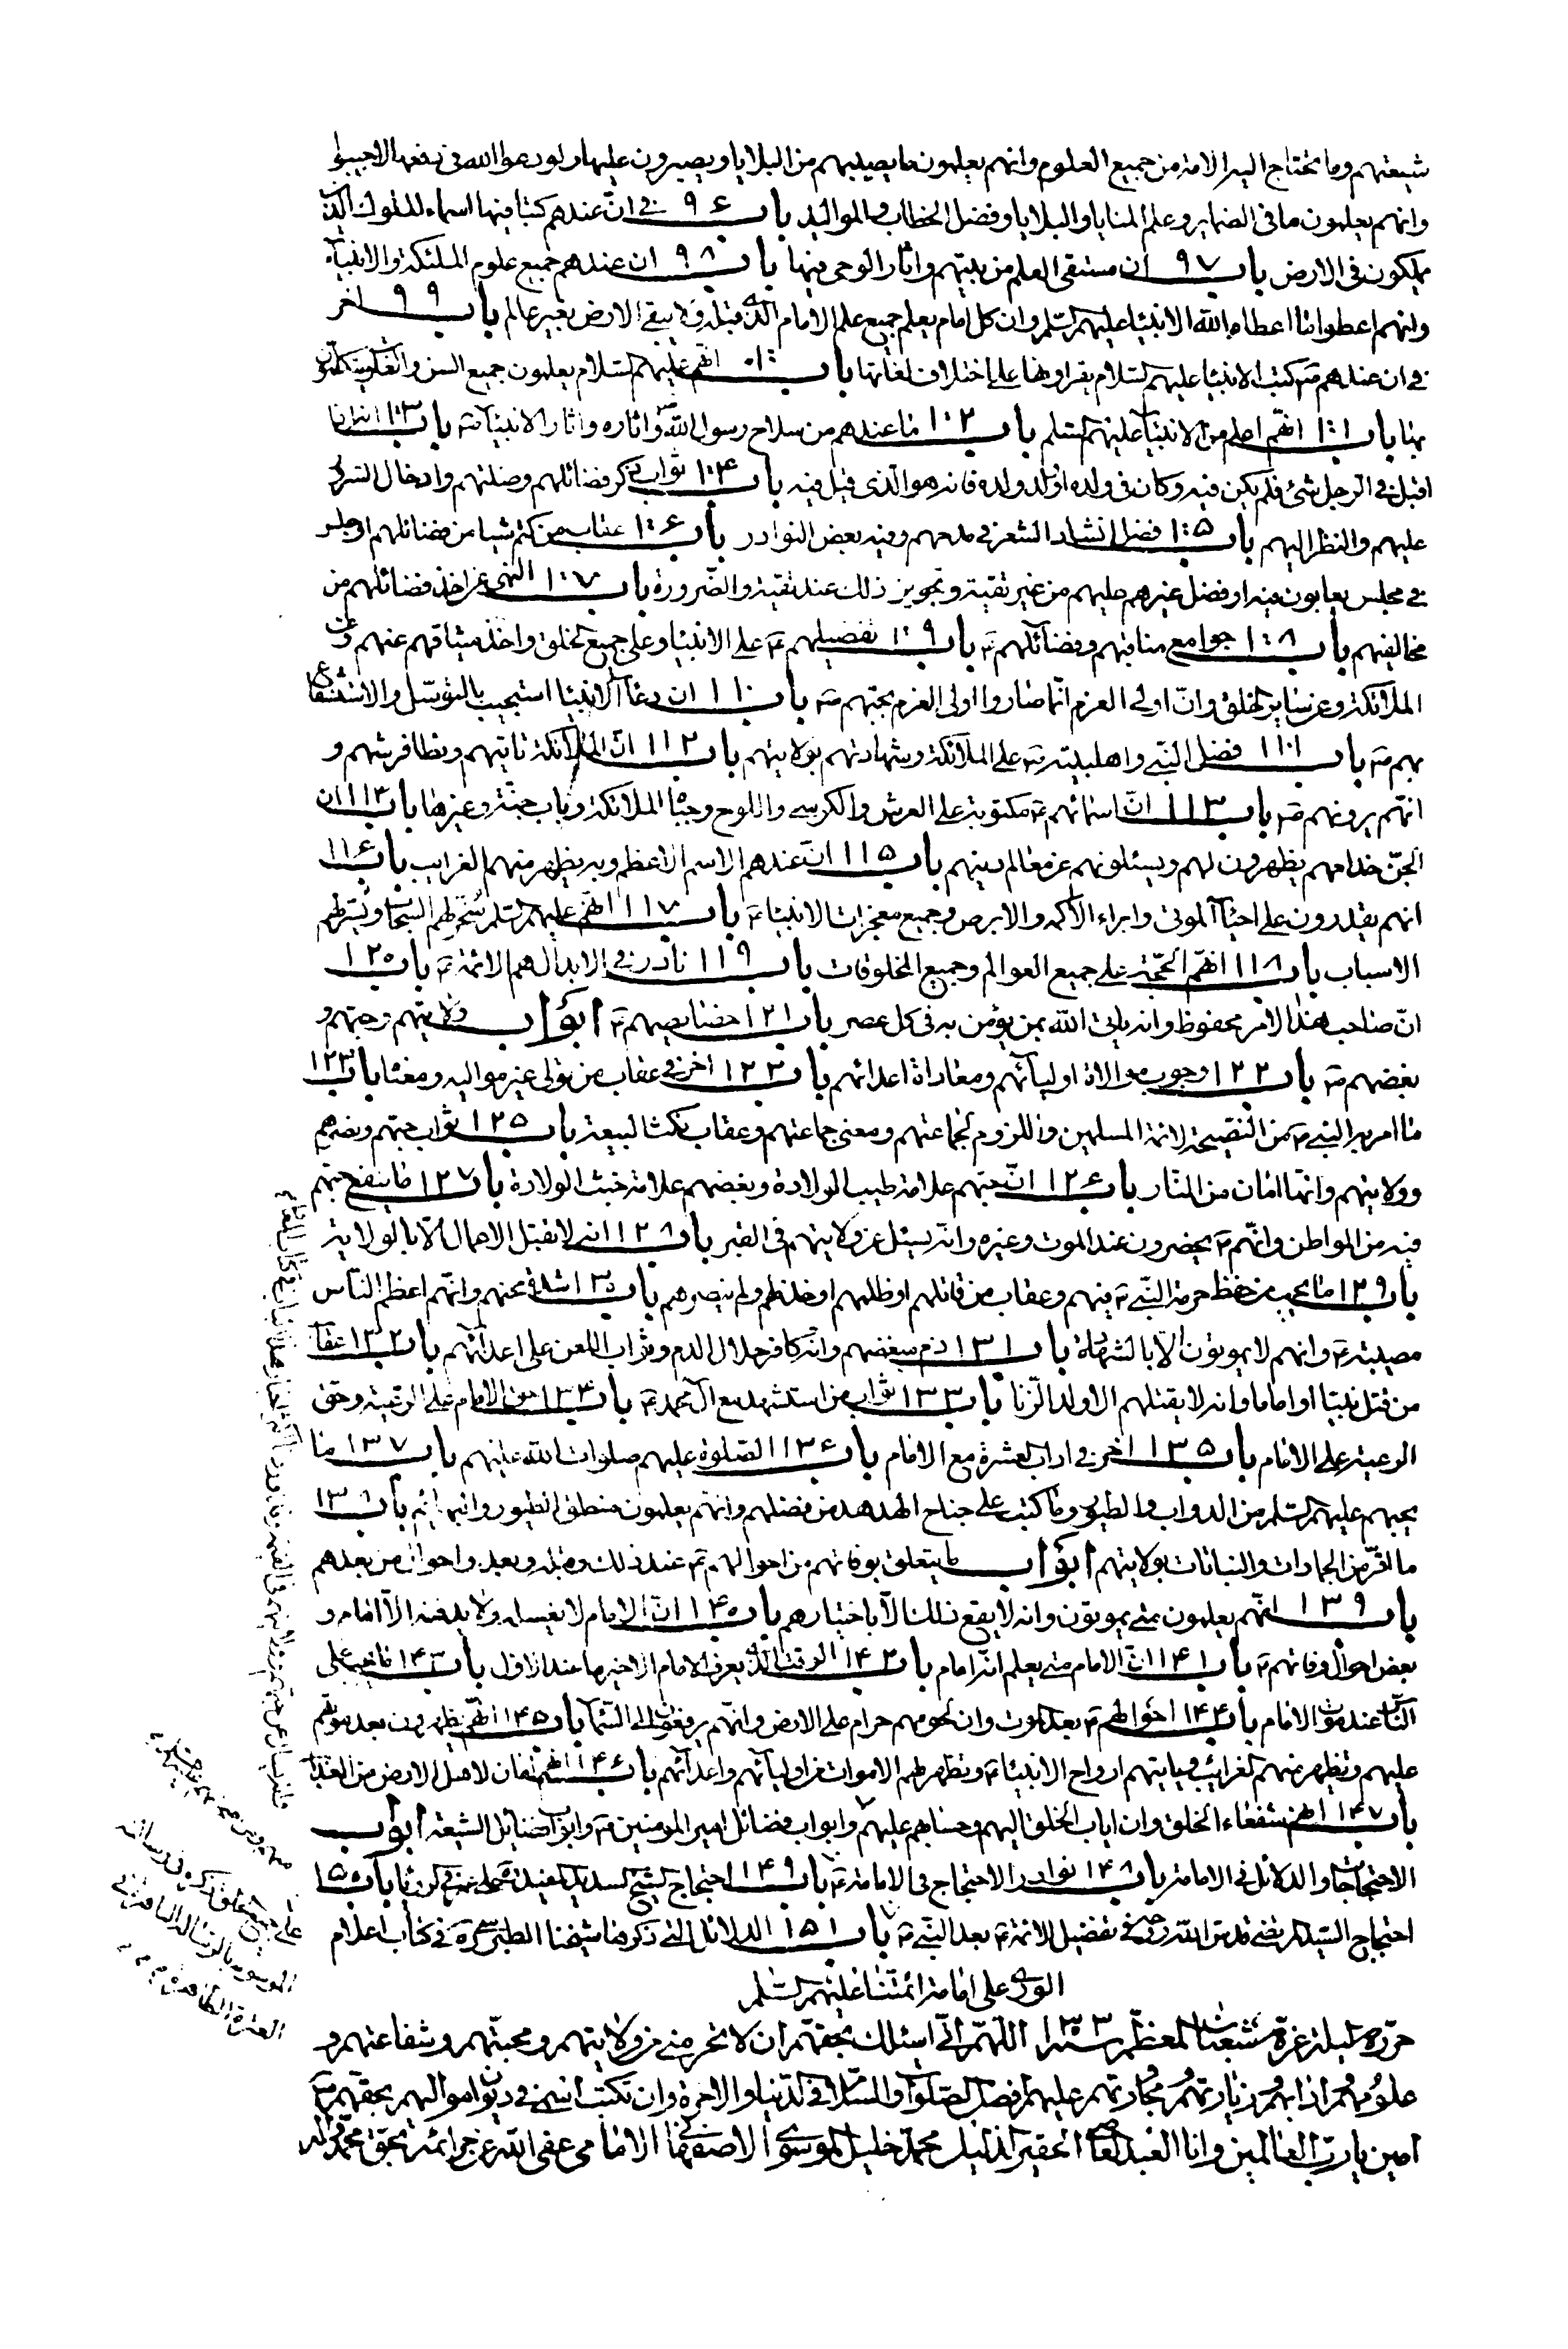 شيعتهم وما تحتاج اليه الامة من جميع العلوم وانهم يعلمون ما يصيبهم من البلايا ويصبرون عليها ولو دعوا الله فى دفعها لاجيبوا
وانهم يعلمون ما فى الضماير وعلم المنايا والبلايا وفضل الخطاب والمواليد باب ٩٦ فى انّ عندهم كتبا فيها اسماء الملوك الذين
يملكون فى الارض باب ٩٧ ان مستقى العلم من بيتهم واثار الوحى فيها باب ٩٨ ان عندهم جميع علوم الملئكة والانبياء
وانهم اعطوا ما اعطاه الله الانبياء عليهم السلم وان كل امام يعلم جميع علم الامام الذى قبله ولا يبقى الارض بغير عالم باب ٩٩ اخر
فى ان عندهم كتب الانبياء عليهم السلام يقراونها على اختلاف لغاتها باب ١٠٠ انهم عليهم السلام يعلمون جميع السن واللغات ويتكلمون
بها باب ١٠١ انهم اعلم من الانبياء عليهم السلم باب ١٠٢ ما عندهم من سلاح رسول الله واثاره واثار الانبياء باب ١٠٣ انه اذا
قيل فى الرجل شئ فلم يكن فيه وكان فى ولده او ولد ولده فانه هو الذى قيل فيه باب ١٠٤ ثواب ذكر فضائلهم وصلتهم وادخال السرور
عليهم والنظر اليهم باب ١٠٥ فضل انشاد الشعر فى مدحهم وفيه بعض النوادر باب ١٠٦ عقاب من كتم شيئا من فضائلهم او جلس
فى مجلس يعابون فيه او فضل غيرهم عليهم من غير تقية وتجويز ذلك عند تقية والضّرورة باب ١٠٧ النهى عن اخذ فضائلهم من
مخالفيهم باب ١٠٨ جوامع مناقبهم وفضائلهم باب ١٠٩ تفضيلهم على الانبياء وعلى جميع الخلق واخذ ميثاقهم عنهم وعن
الملائكة وعن سائر الخلق وانّ اولى العزم انّما صاروا اولى العزم بحبهم باب ١١٠ ان دعاء الانبياء استجيب بالتوسّل والاستشفاع
بهم باب ١١١ فضل النبى واهل بيته على الملائكة وشهادتهم بولايتهم باب ١١٢ انّ الملائكة تاتيهم وتطا فرشهم و
انهّم يرونهم باب ١١٣ انّ اسمائهم مكتوبة على العرش والكرسى واللوح وجباه الملائكة وباب جنّة وغيرها باب ١١٤ ان
الجنّ خدامهم يظهرون لهم ويسئلونهم عن معالم دينهم باب ١١٥ انّ عندهم الاسم الاعظم وبه يظهر منهم الغرايب باب ١١٦
انهم يقدرون على احياء الموتى وابراء الاكمه والابرص وجميع معجزات الانبياء باب ١١٧ انهّم عليهم السلم سُخّر لهم السّحاب ويُسّر لهم
الاسباب باب ١١٨ انهّم الحجّة على جميع العوالم وجميع المخلوقات باب ١١٩ نادر فى الابدال هم الائمة باب ١٢٠
انّ صاحب هذا الامر محفوظ وانه ياتى الله بمن يؤمن به فى كل عصر باب ١٢١ خصايصهم ابواب ولايتهم وحبّهم و
بغضهم باب ١٢٢ وجوب موالاة اوليائهم ومعاداة اعدائهم باب ١٢٣ اخر فى عقاب من تولى غير مواليه ومعناه باب ١٢٤
ما امر به النبى من النّصيحة لائمة المسلمين واللزوم لجماعتهم ومعنى جماعتهم وعقاب نكث البيعة باب ١٢٥ ثواب حبّهم ونصرهم
وولايتهم وانها امان من النار باب ١٢٦ انّ حبّهم علامة طيب الولادة وبغضهم علامة خبث الولادة باب ١٢٧ ما ينفع حبّهم
فيه من المواطن وانّهم يحضرون عند الموت وغيره وانّه يسئل عن ولايتهم فى القبر باب ١٢٨ انه لا تقبل الاعمال الّا بالولاية
باب ١٢٩ ما يجب من حفظ حرمة النّبى فيهم وعقاب من قاتلهم او ظلمهم او خذلهم ولم ينصرهم باب ١٣٠ شدة محنهم وانّهم اعظم النّاس
مصيبة وانهم لا يموتون الّا بالشهادة باب ١٣١ ذم مبغضهم وانّه كافر حلال الدم وثواب اللعن على اعدائهم باب ١٣٢ عقاب
من قتل نبيّا او اماما وانه لا يقتلهم الا ولد الزّنا باب ١٣٣ ثواب من استشهد مع آل محمد باب ١٣٤ حق الامام على الرّعية وحق
الرعية على الامام باب ١٣٥ اخر فى اداب العشرة مع الامام باب ١٣٦ الصّلوة عليهم صلوات الله عليهم باب ١٣٧ ما
يحبهم عليهم السّلم من الدواب والطيور وما كتب على جناح الهدهد من فضلهم وانهّم يعلمون منطق الطيور والبهائم باب ١٣٨
ما اقرّ من الجمادات والنباتات بولايتهم ابواب ما يتعلق بوفاتهم من احوالهم عند ذلك وقبله وبعده واحوال من بعدهم
باب ١٣٩ انهّم يعلمون متى يموتون وانه لا يقع ذلك الّا باختيارهم باب ١٤٠ انّ الامام لا يغسله ولا يدفنه الّا امام و
بعض احوال وفاتهم باب ١٤١ انّ الامام متى يعلم انّه امام باب ١٤٢ الوقت الذى يعرف الامام الاخير ما عند الاول باب ١٤٣ ما يجب على
النّاس عند موت الامام باب ١٤٤ احوالهم بعد الموت وان لحومهم حرام على الارض وانّهم يرفعون الى السّماء باب ١٤٥ انهّم يظهرون بعد موتهم
عليهم ويظهر منهم الغرايب وياتيهم ارواح الانبياء وتظهر لهم الاموات من اوليائهم واعدائهم باب ١٤٦ انهم امان لاهل الارض من العذاب
باب ١٤٧ انهم شفعاء الخلق وان اياب الخلق اليهم وحسابهم عليهم وابواب فضائل امير المومنين وابواب فضائل الشيعة ابواب
الاحتجاجات والدلائل فى الامامة باب ١٤٨ نوادر الاحتجاج فى الامامة باب ١٤٩ احتجاج الشيخ السديد المفيد باب ١٥٠
احتجاج السّيد المرتضى قدس الله روحه فى تفضيل الائمة بعد النّبى باب ١٥١ الدلائل التى ذكرها شيخنا الطبرسى ره فى كتاب اعلام
الورى على امامة ائمتنا عليهم السلم
حرّره ليلة غرة شعبان المعظّم اللهمّ انّى اسئلك بحقهّم ان لا تخرجنى من ولايتهم ومحبّتهم وشفاعتهم و
علومهم زيارتهم عليهم افضل الصّلوة والسّلام فى الدّنيا والاخرة وان تكتب اسمى فى ديوان مواليهم بحقهّم
امين يا ربّ العالمين وانا العبد الحقير الذليل محمّد خليل الموسوى الاصفهانى الامامى عفى الله عن جرائمه بحق محمّد واله